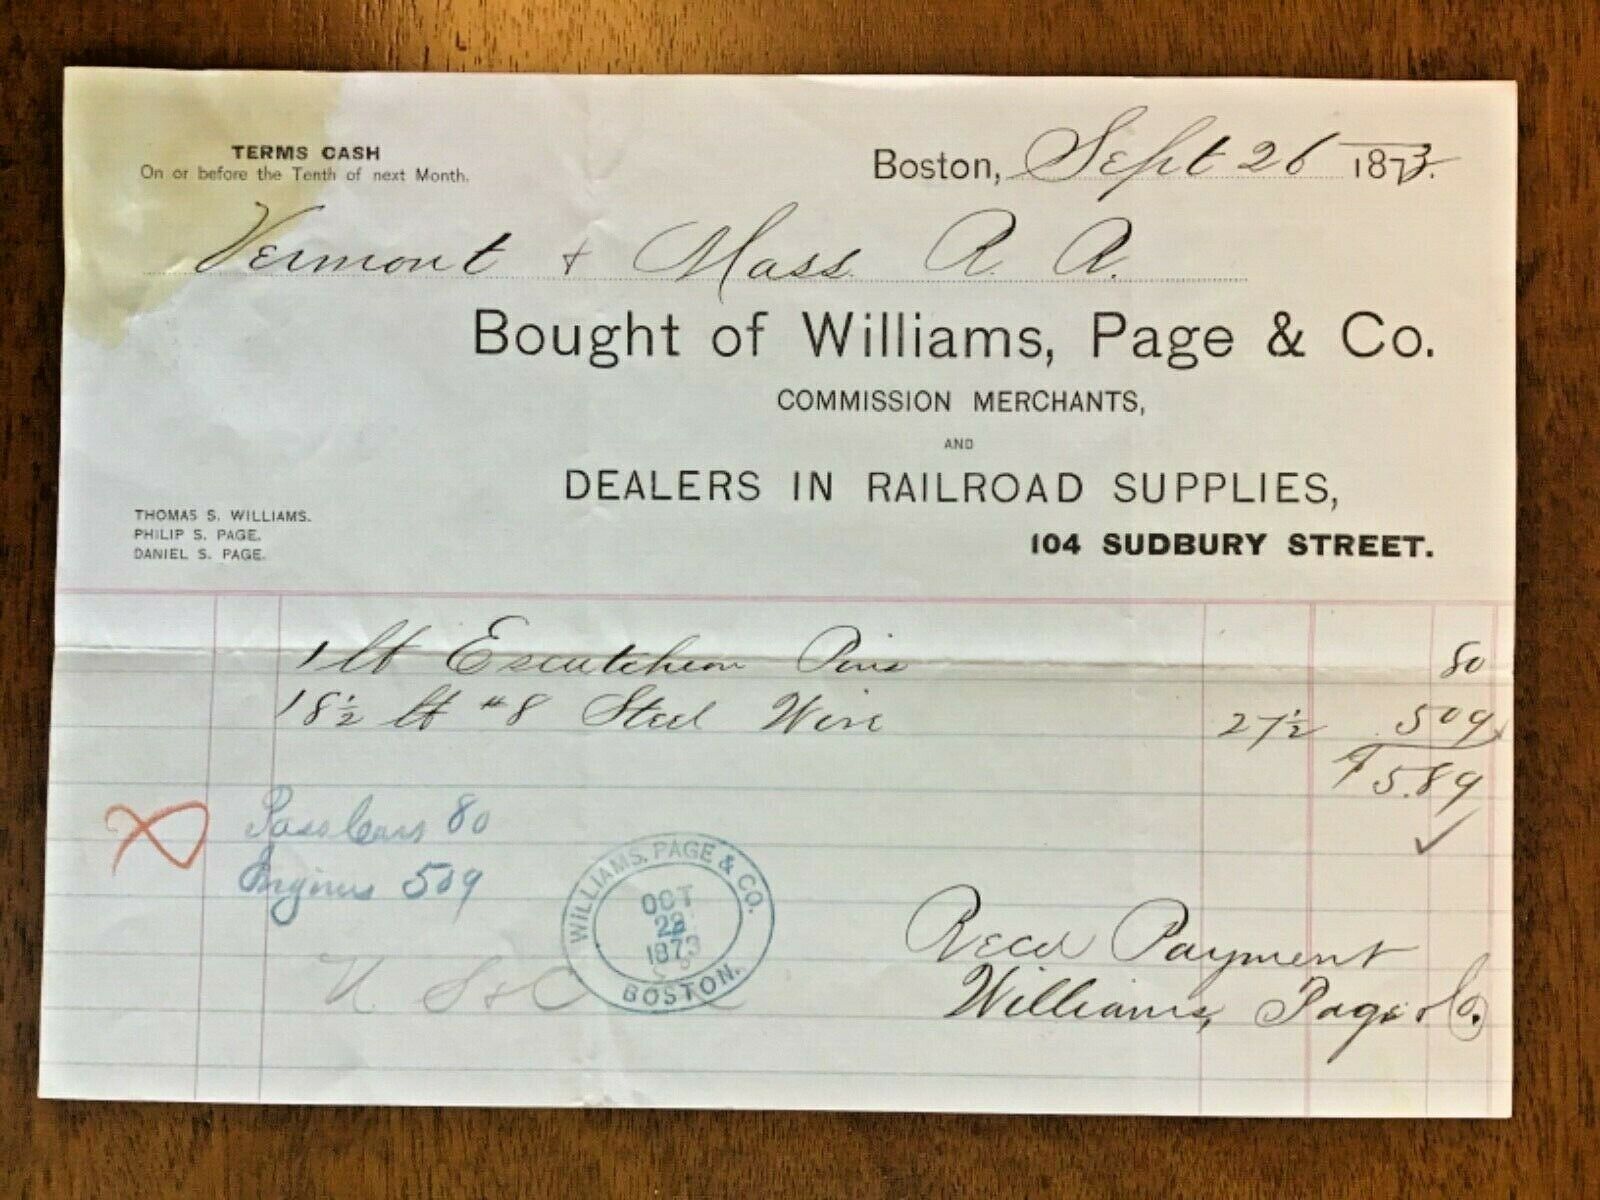 TERMS CASH
On or before the Tenth of next Month.
Boston, Sept 26 1873.
Vermont & Mass R. R.
Bought of Williams, Page & Co.
COMMISSION MERCHANTS,
AND
DEALERS IN RAILROAD SUPPLIES,
104 SUDBURY STREET.
THOMAS S. WILLIAMS.
PHILIP S. PAGE.
DANIEL S. PAGE.
1 lb Escutcheon Pins 80
18½ lb #8 Steel Wire 27½ 509
$5.89
Pass Cars 80
Engines 509
WILLIAMS, PAGE & CO.
OCT
1873
BOSTON.
Recd Payment
Williams, Page & Co.